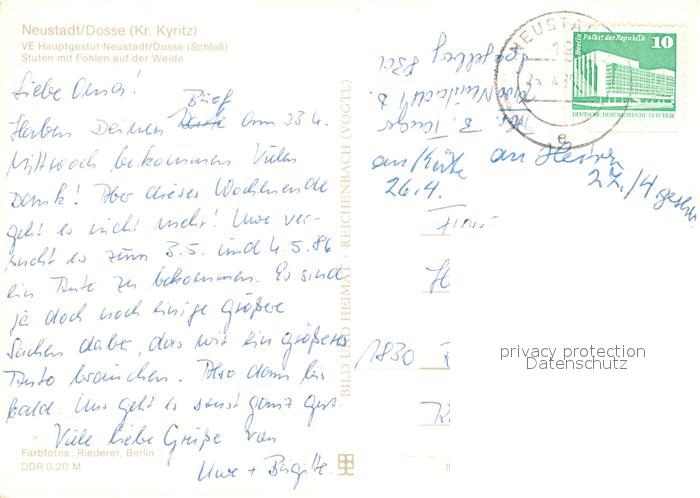 Neustadt/Dosse (Kr. Kyritz)
VE Hauptgestüt Neustadt/Dosse (Schloß)
Stuten mit Fohlen auf der Weide
Liebe Oma!
Brief
Haben Deinen am 23.4.
Mittwoch bekommen. Vielen
Dank! Aber dieses Wochenende
geht es nicht mehr! Uwe ver-
sucht es zum 3.5. und 4.5.86
ein Auto zu bekommen. Es sind
ja doch noch einige größere
Sachen dabei, das wir ein größeres
Auto brauchen. Also dann bis
bald. Uns geht es sonst ganz gut.
Viele liebe Grüße von
Uwe + Birgitte.
Farbfotos: Riederer, Berlin
DDR 0,20 M
BILD UND HEIMAT · REICHENBACH (VOGTL)
NEUSTADT
e
Berlin Palast der Republik
10
DEUTSCHE DEMOKRATISCHE REPUBLIK
B.
Neustadt D.
an Käte an
26.4. 27./4
1830
privacy protection
Datenschutz